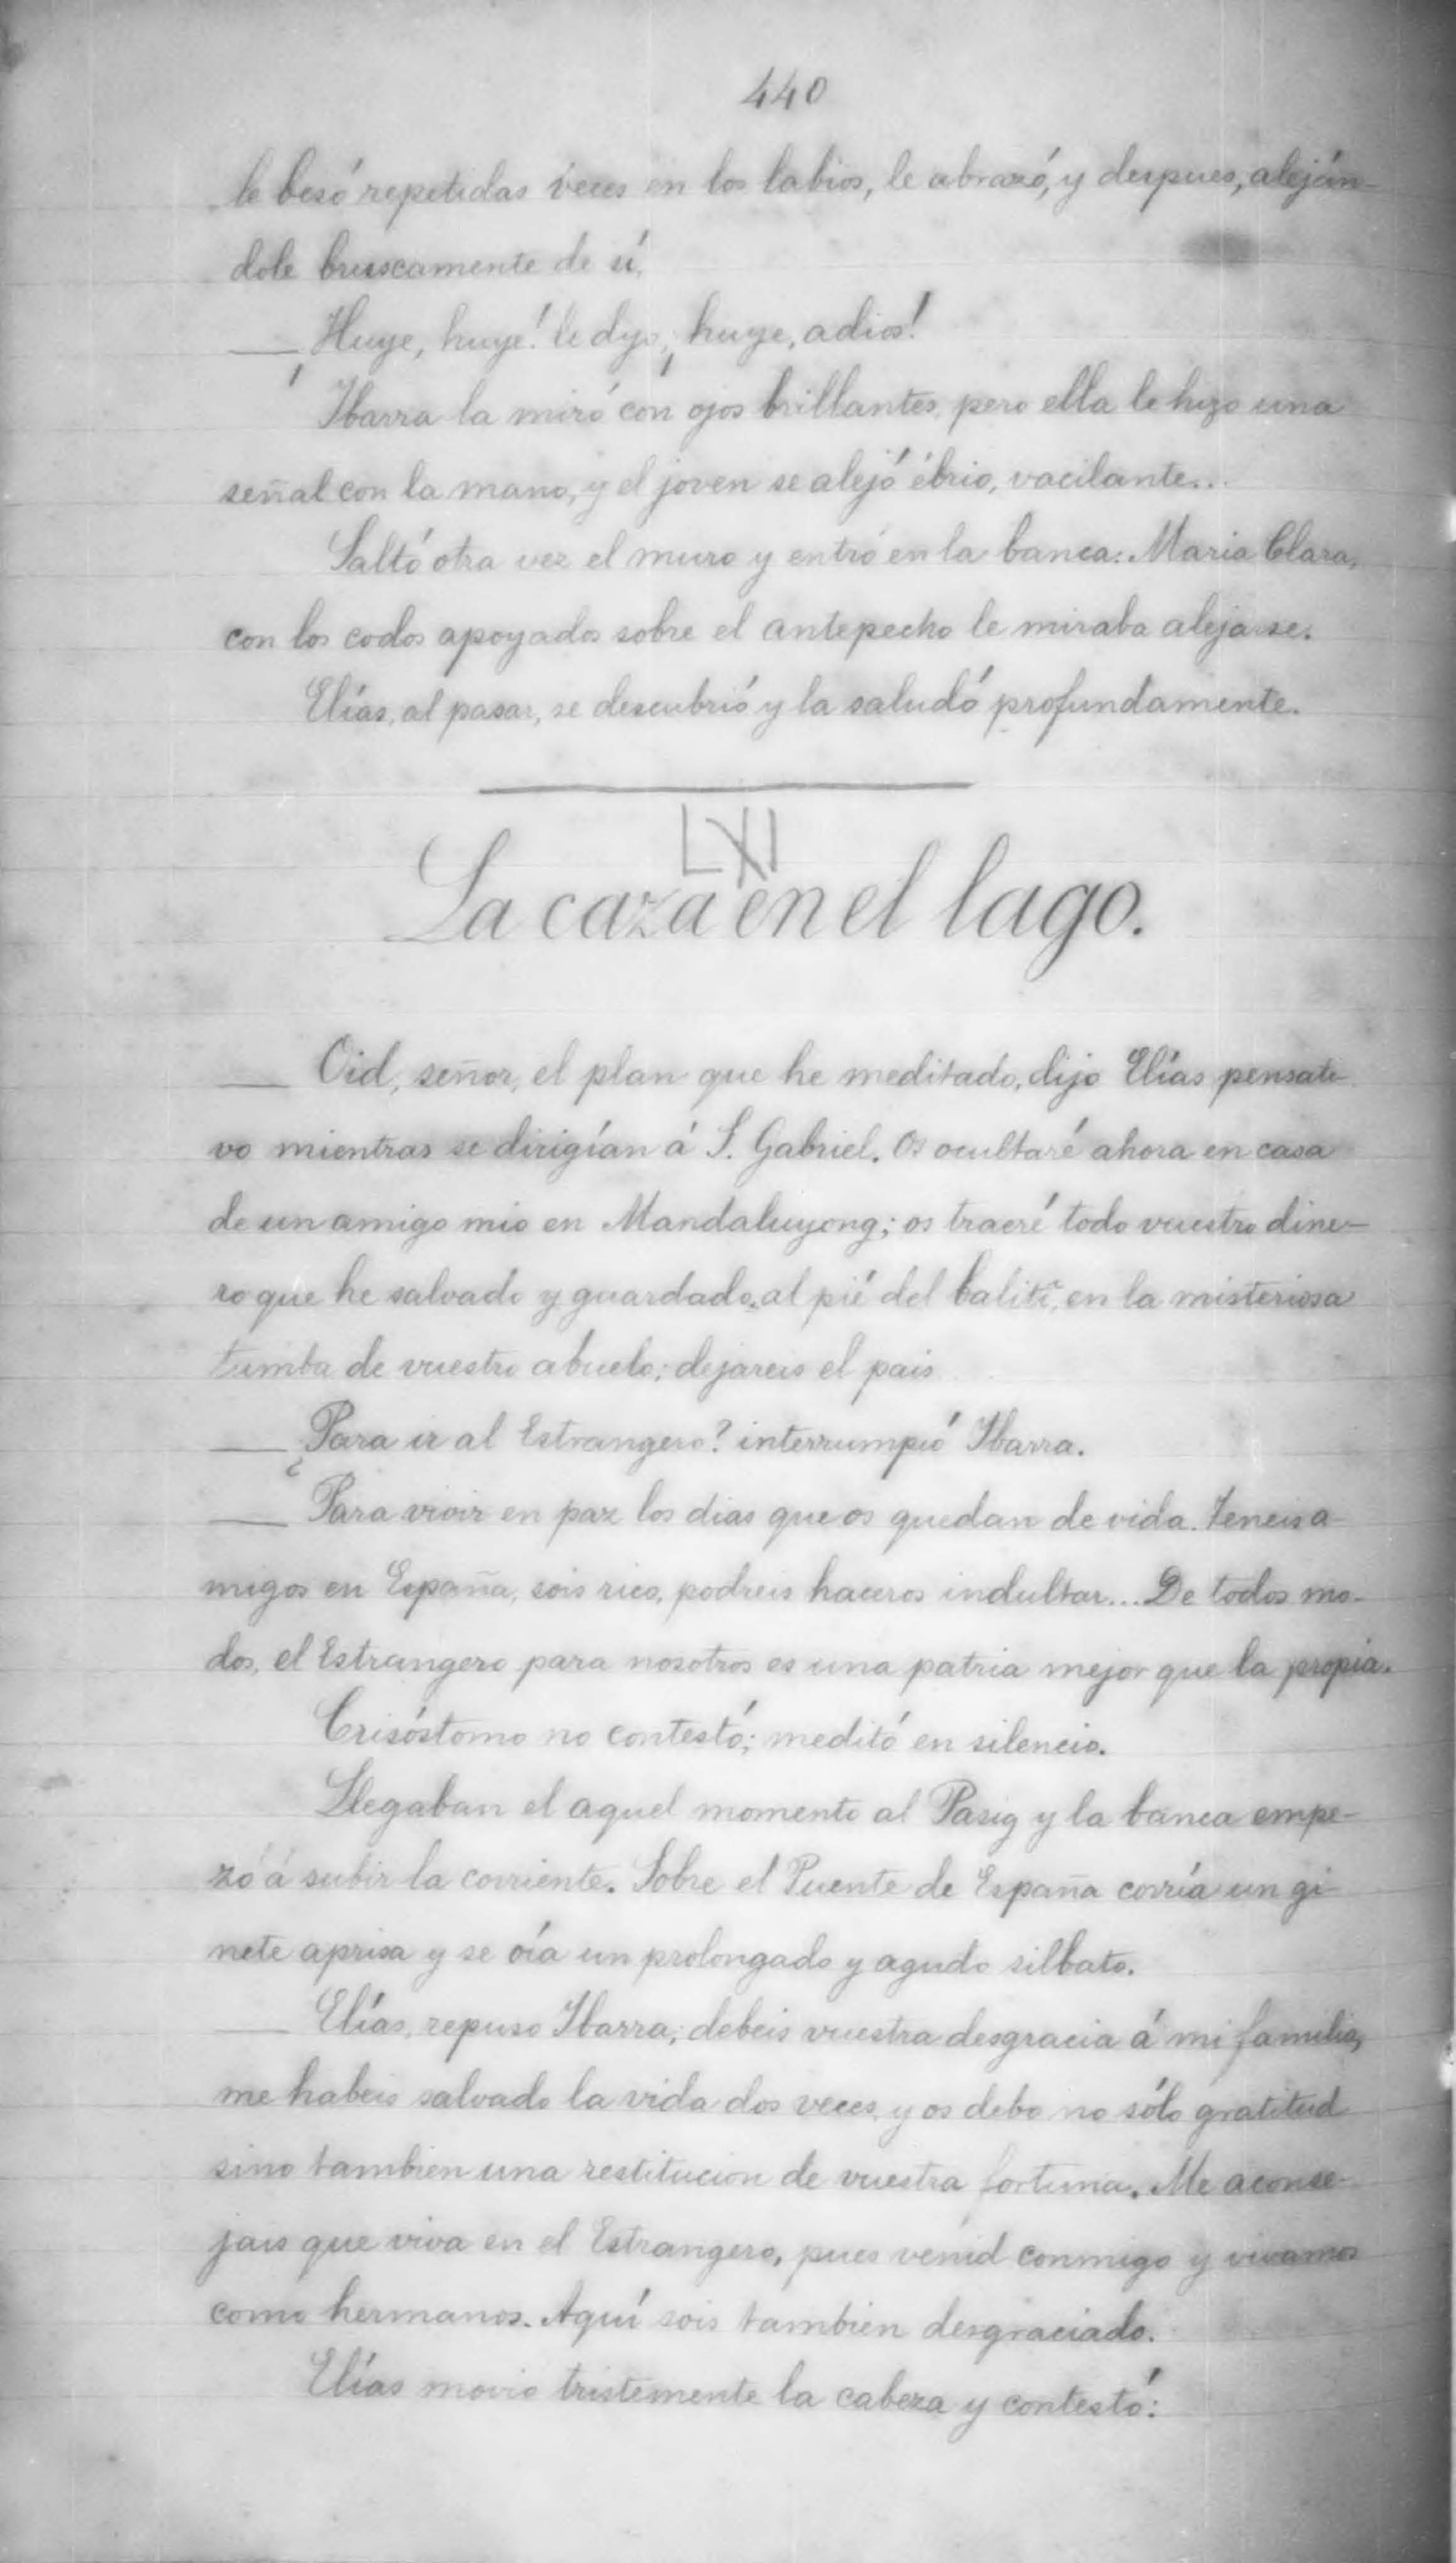 440
le besó repetidas veces en los labios, le abrazó, y despues, aleján-
dole bruscamente de sí,
— ¡Huye, huye! le dijo, ¡huye, adios!
Ibarra la miró con ojos brillantes, pero ella le hizo una
señal con la mano, y el joven se alejó ébrio, vacilante...
Saltó otra vez el muro y entró en la banca. Maria Clara,
con los codos apoyados sobre el antepecho le miraba alejarse.
Elías, al pasar, se descubrió y la saludó profundamente.
LXI
La caza en el lago.
— Oid, señor, el plan que he meditado, dijo Elías pensati-
vo mientras se dirigían á S. Gabriel. Os ocultaré ahora en casa
de un amigo mio en Mandaluyong; os traeré todo vuestro dine-
ro que he salvado y guardado, al pié del baliti, en la misteriosa
tumba de vuestro abuelo; dejareis el pais
— ¿Para ir al Estrangero? interrumpió Ibarra.
— Para vivir en paz los dias que os quedan de vida. Teneis a-
migos en España, sois rico, podreis haceros indultar... De todos mo-
dos, el Estrangero para nosotros es una patria mejor que la propia.
Crisóstomo no contestó; meditó en silencio.
Llegaban el aquel momento al Pasig y la banca empe-
zó á subir la corriente. Sobre el Puente de España corría un gi-
nete aprisa y se oía un prolongado y agudo silbato.
— Elías, repuso Ibarra; debeis vuestra desgracia á mi familia,
me habeis salvado la vida dos veces, y os debo no sólo gratitud
sino tambien una restitucion de vuestra fortuna. Me aconse-
jais que viva en el Estrangero, pues venid conmigo y vivamos
como hermanos. Aquí sois tambien desgraciado.
Elías movió tristemente la cabeza y contestó: